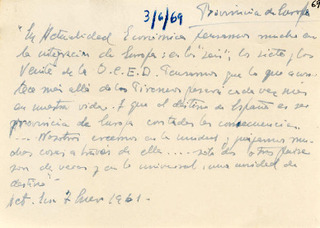 3/6/69
Provincia de Europa
69
"En Actualidad Económica pensamos mucho en
la integración de Europa: en los "seis", los siete y los
veinte de la O.C.E.D. Pensamos que lo que acon-
tece más allá de los Pirineos pesará cada vez más
en nuestra vida. Y que el destino de España es ser
provincia de Europa con todas las consecuencias...
... Nosotros creemos en la unidad, y quizamos mu-
chas cosas a través de ella.....
son de veras y en lo universal, una unidad de
destino"
Act. Ec. 7 Enero 1961.